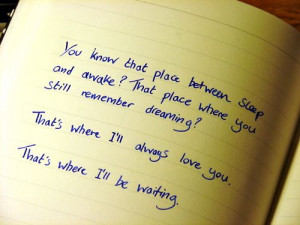 You know that place between sleep
and awake? That place where you
still remember dreaming?
That's where I'll always love you.
That's where I'll be waiting.